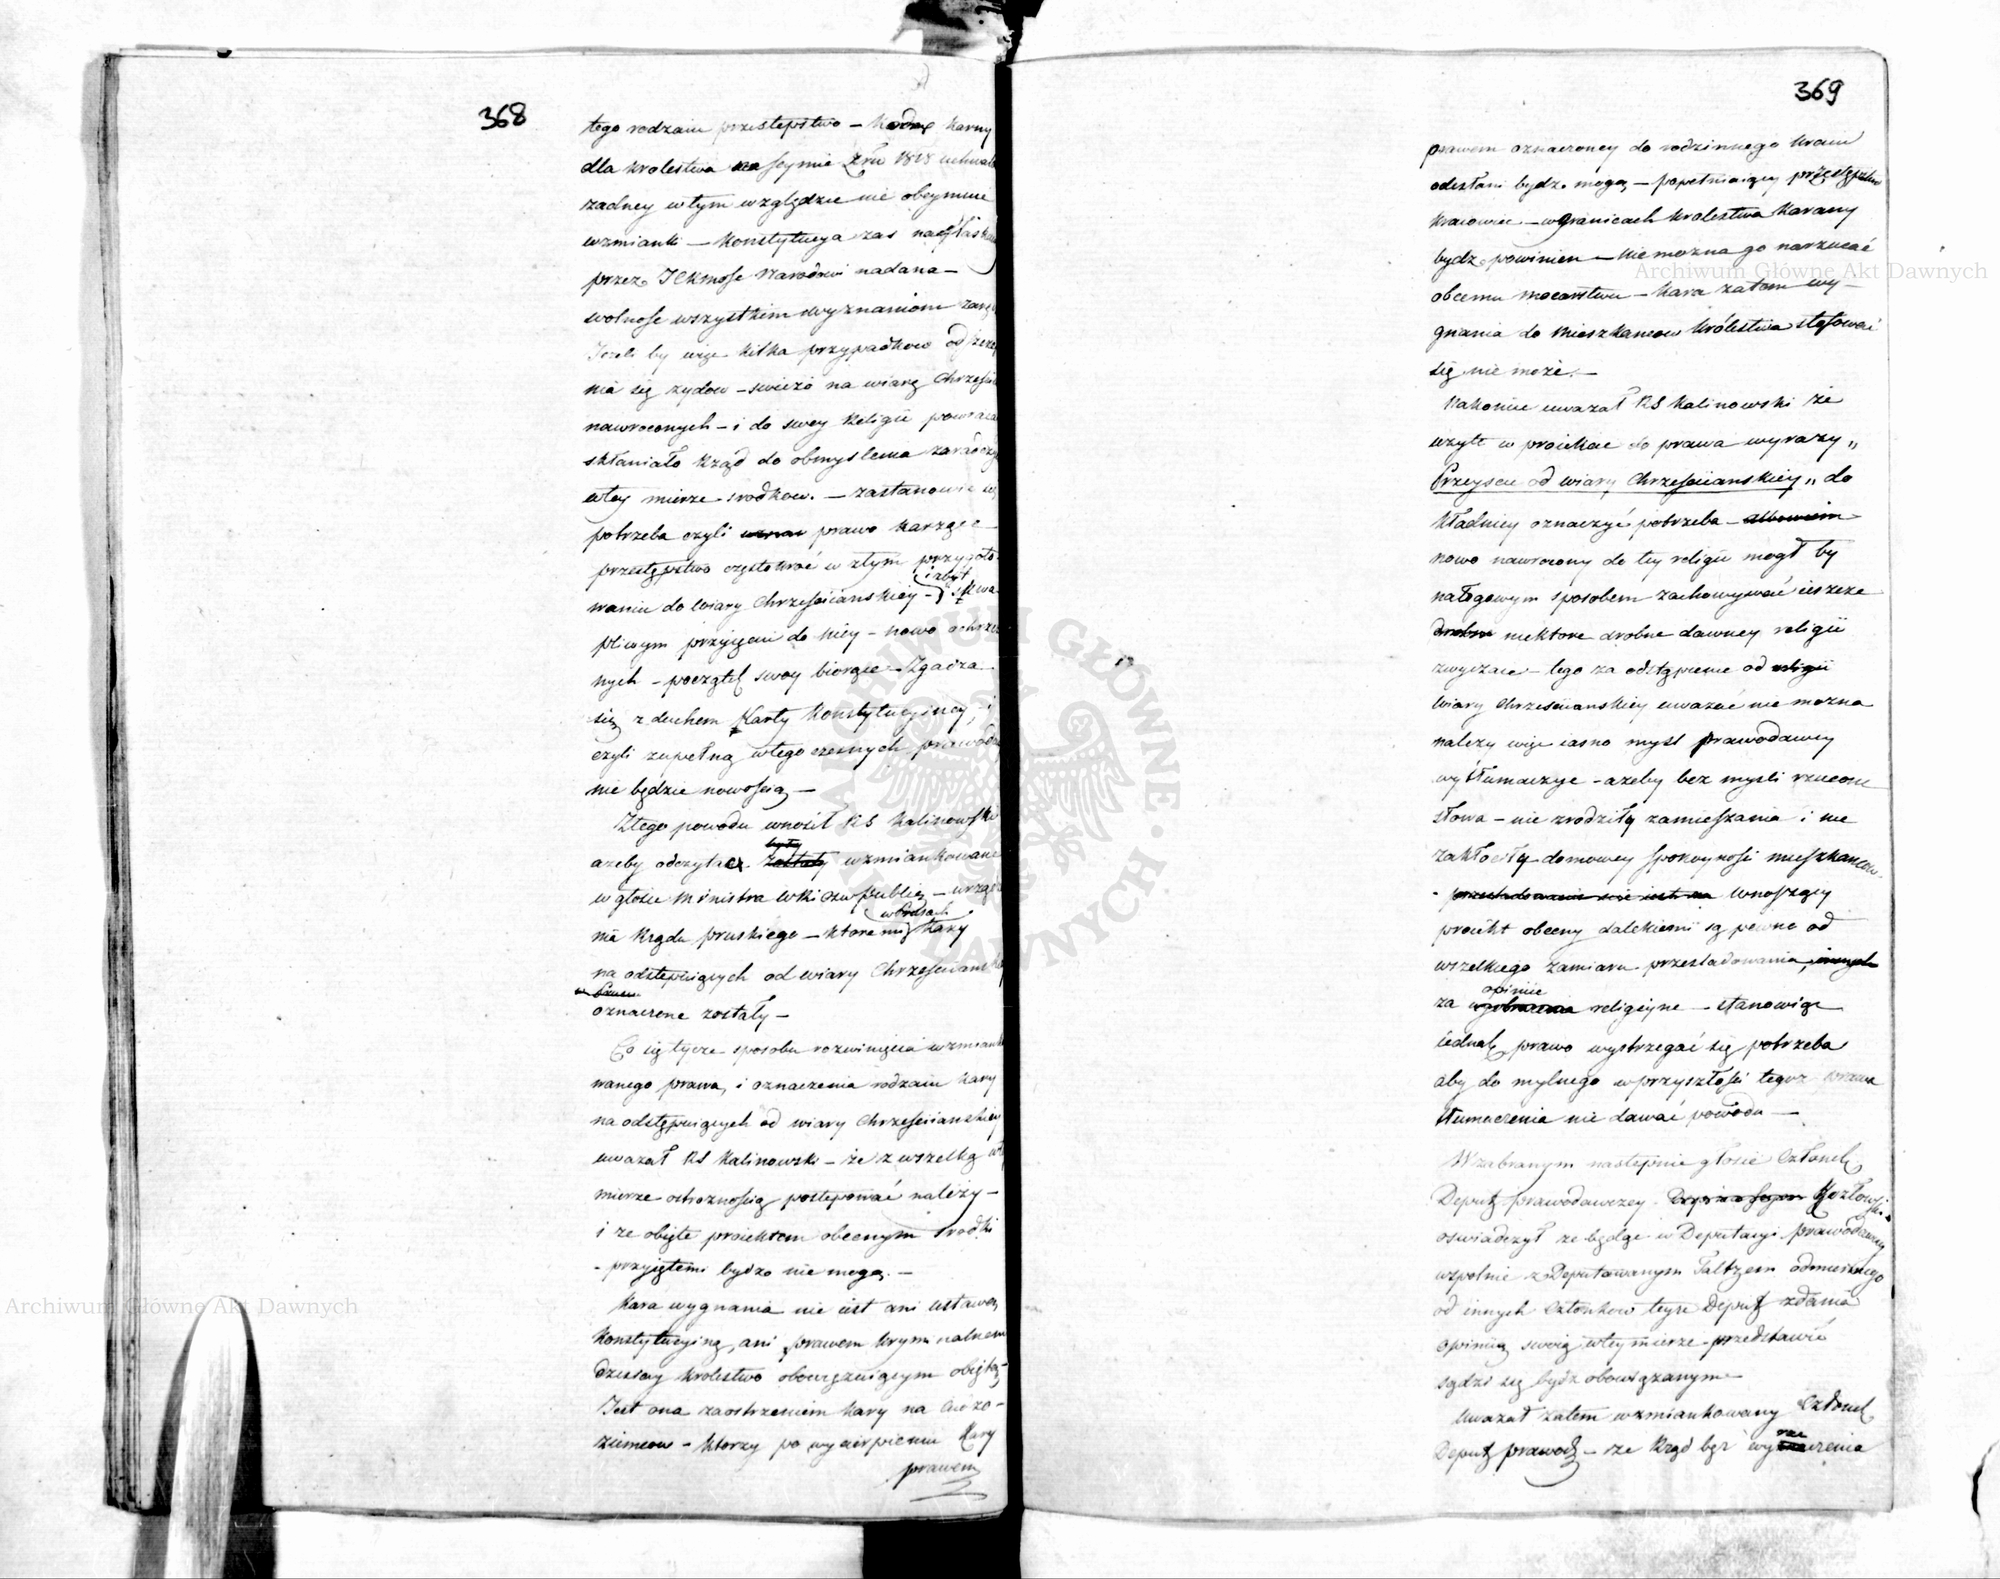 368
tego rodzaiu przestępstwo – Kodex karny
dla krolestwa na Seymie Zru 1818
zadney w tym względzie nie obeymuie
wzmianki – Konstytucya zas
przez JCKmość Narodowi nadana –
wolność wszystkim wyznaniom
Jezeli by więc kilka przypadkow
nia się zydow – swiezo na wiarę
nawroconych – i do swey Religii
skłaniało Rząd do obmyslenia
w tey mierze srodkow. – zastanowic się
potrzeba czyli prawo karzące
przestępstwo częstokroć w złym przygoto-
waniu do Wiary Chrzesciianskiey – i zbyt skwa-
pliwym przyięciu do niey – nowo
nych – początek swoy biorące – Zgadza
się z duchem Karty Konstytucyiney, i
czyli zupełną w tegoczesnych
nie będzie nowością –
Z tego powodu wnosił RS Kalinowski
azeby odczytane były zostały wzmiankowane
w głosie Ministra
nia Rządu pruskiego – ktoremi w Prusach kary
na odstępuiących od wiary
oznaczone zostały –
Co się tycze sposobu rozwinięcia
wanego prawa, i oznaczenia rodzaiu kary
na odstępuiących od wiary Chrzesciianskiey
uwazał RS Kalinowski – że z wszelką w tey
mierze ostroznością postępować należy –
i ze obięte proiektem obecnym srodki
– przyiętemi bydz nie mogą. –
Kara wygnania nie iest ani ustawą
Konstytucyiną, ani prawem kryminalnem
dzisiay Krolestwo obowięzuiącym obiętą –
Jest ona zaostrzeniem kary na cudzo-
ziemcow – ktorzy po wycierpieniu Kary
prawem
369
prawem oznaczoney do rodzinnego kraiu
odesłani bydz mogą – popełniaiący przestępstwo
kraiowiec – w granicach krolestwa karany
bydz powinien – nie mozna go narzucać
obcemu mocarstwu – kara zatem wy-
gnania do Mieszkancow Królestwa stosować
się nie może. –
Nakoniec uwazał RS Kalinowski że
uzyte w proiekcie do prawa wyrazy „
Przeyscie od wiary Chrzesciianskiey „ do
kładniey oznaczyć potrzeba – albowiem
nowo nawrocony do tey religii mogł by
nałogowym sposobem zachowywać ieszcze
drobne niektore drobne dawney religii
zwyczaie – tego za odstąpienie od religii
wiary Chrzesciianskiey uwazać nie mozna
nalezy więc iasno mysl prawodawcy
wytłumaczyc – azeby bez mysli rzucone
słowa – nie zrodziły zamieszania i nie
zakłociły domowey spokoyności mieszkancow
– wnoszący
proiekt obecny dalekiemi są pewno od
wszelkiego zamiaru przesladowania, innych
za opiniie religiyne – stanowiąc
iednak prawo wystrzegać się potrzeba
aby do mylnego w przyszłości tegoz prawa
tłumaczenia nie dawać powodu –
W zabranym nastepnie głosie Członek
Deput prawodawczey Kozłowski
oswiadczył ze będąc w Deputacyi prawodawczey
wspolnie z Deputowanym Faltzem odmiennego
od innych Członkow teyze Deput zdania
opiniią swoią w tey mierze przedstawić
sądzi się bydz obowiązanym –
Uwazał zatem wzmiankowany Członek
Deput prawod – ze Rząd bez wyrzeczenia